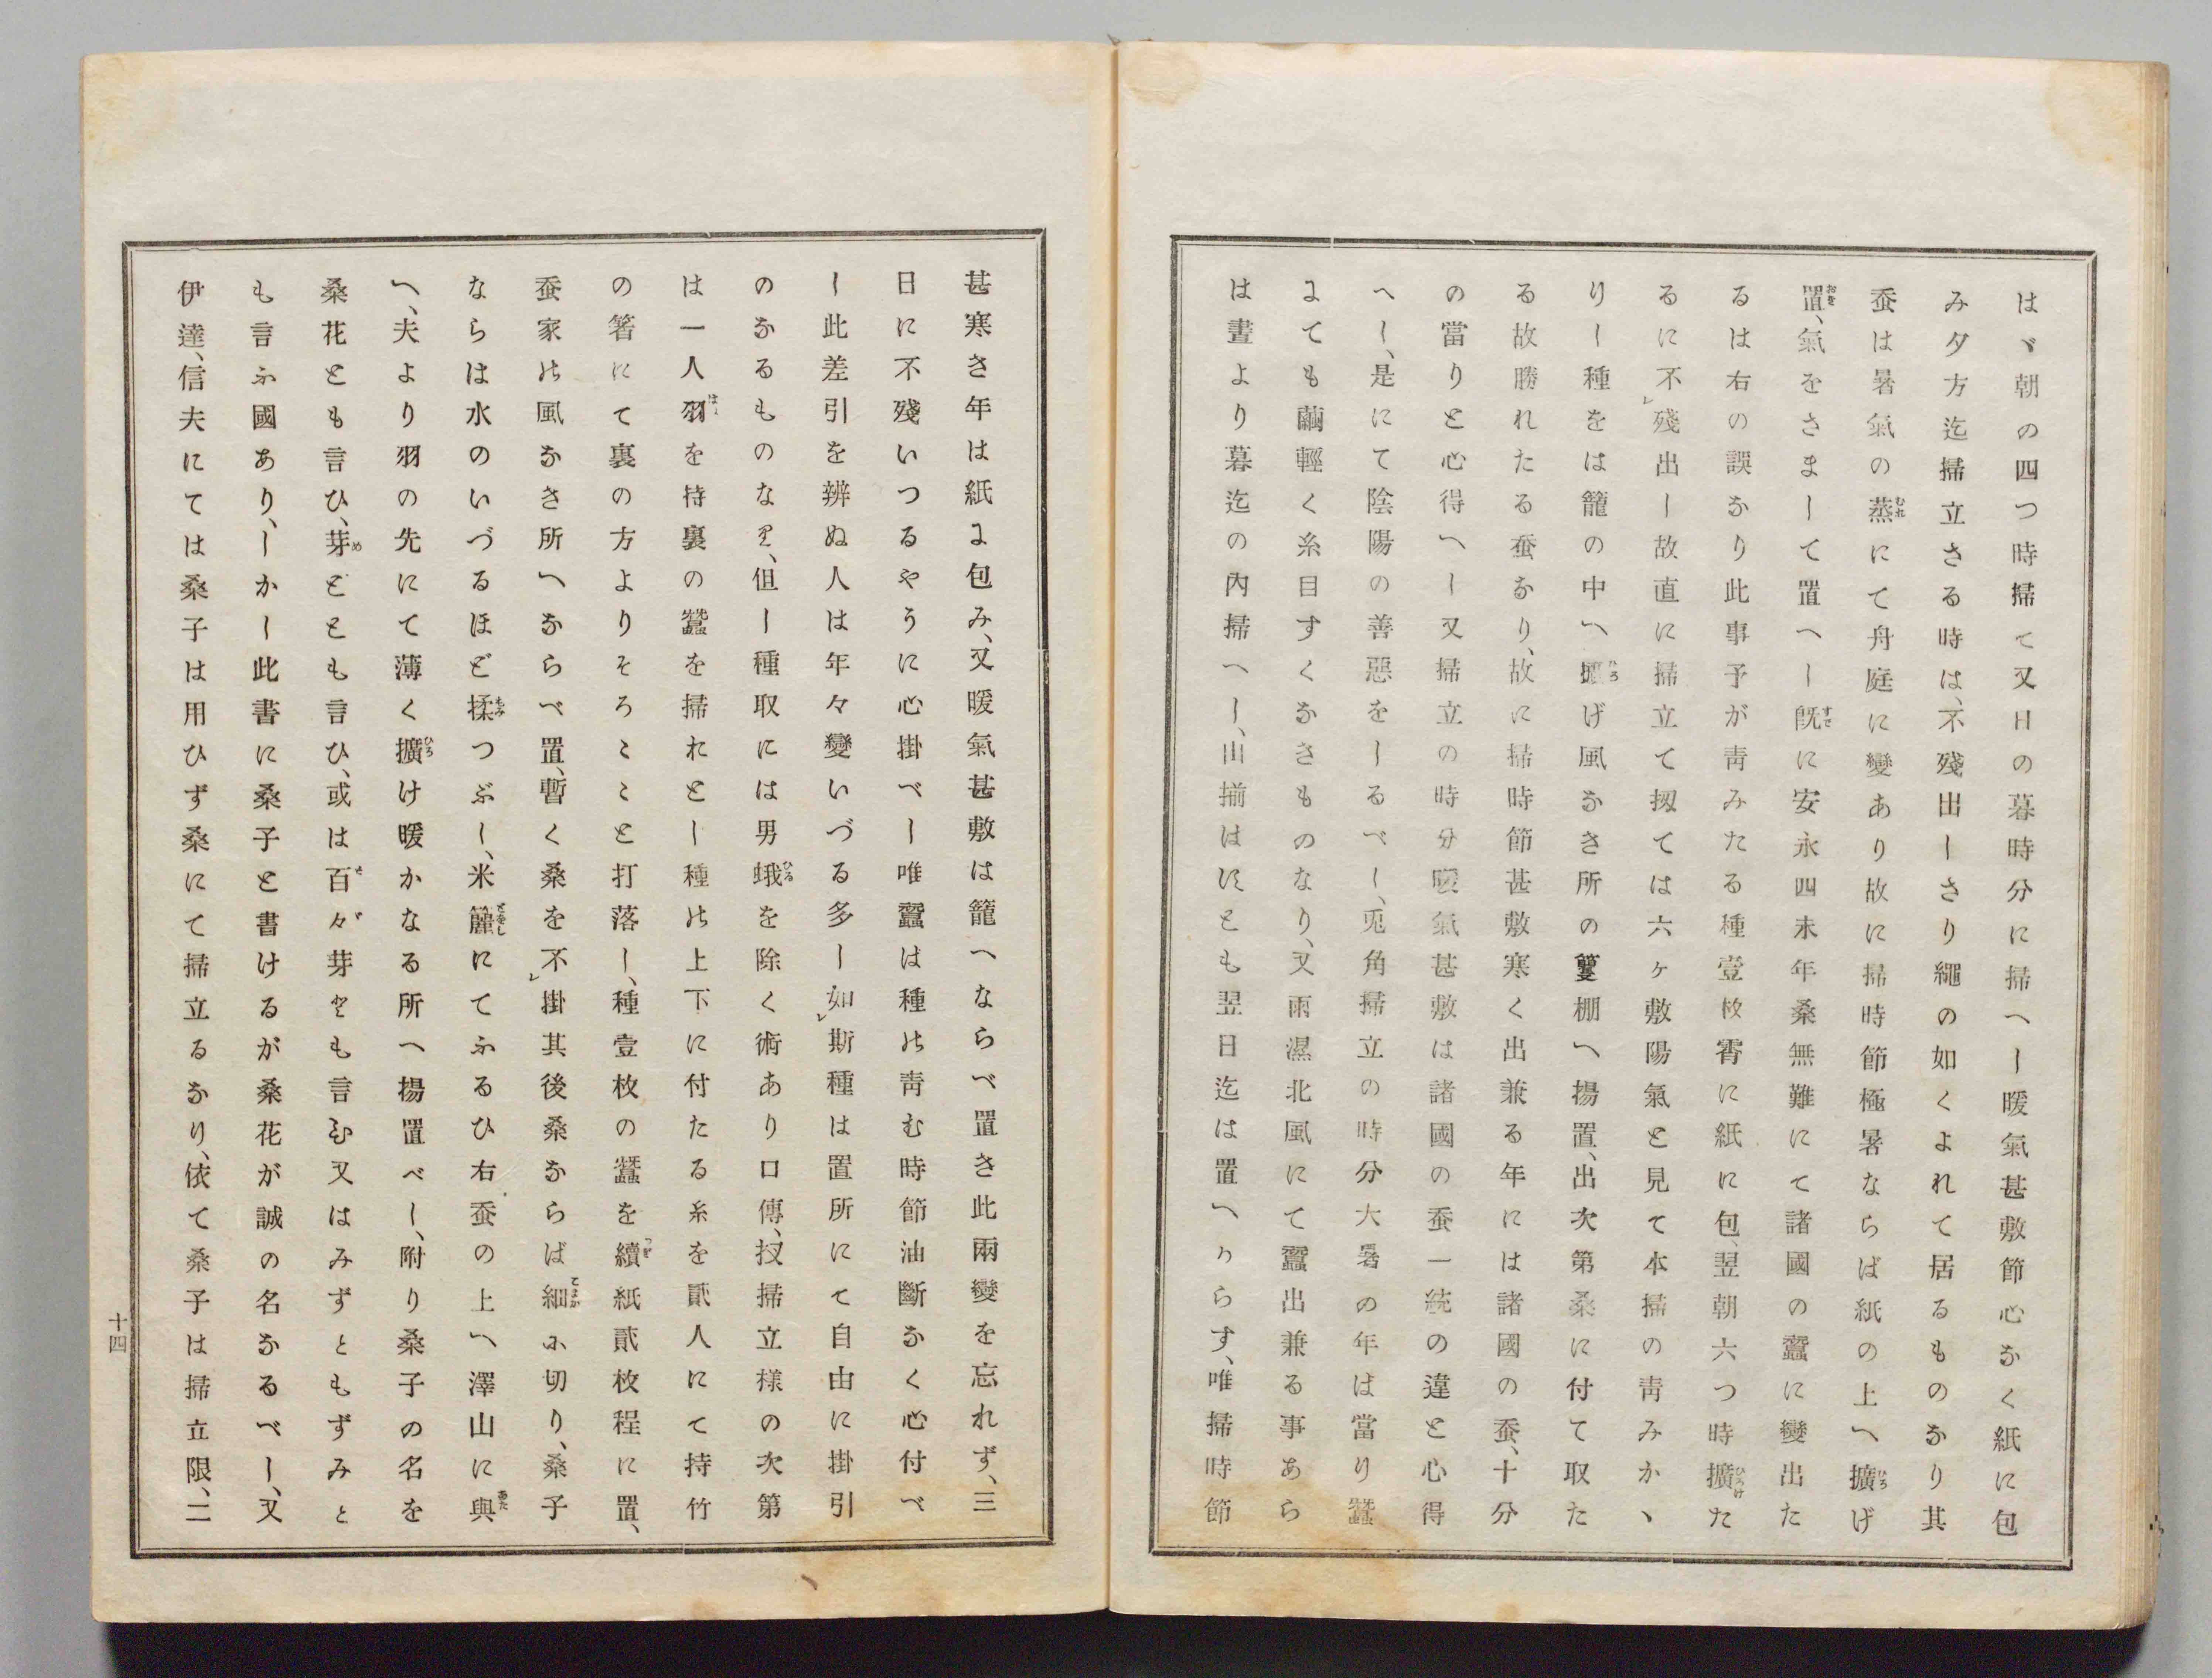 はゞ朝の四つ時掃て又日の暮時分に掃へし暖氣甚敷節心なく紙に包
み夕方迄掃立さる時は、不殘出しさり繩の如くよれて居るものなり其
蚕は暑氣の蒸にて舟庭に變あり故に掃時節極暑ならば紙の上へ擴げ
置、氣をさまして置へし既に安永四未年桑無難にて諸國の蠶に變出た
るは右の誤なり此事予が靑みたる種壹枚宵に紙に包、翌朝六つ時擴た
るに不㆑殘出し故直に掃立て扨ては六ヶ敷陽氣と見て本掃の靑みかゝ
りし種をは籠の中へ擴げ風なき所の簍棚へ揚置、出次第桑に付て取た
る故勝れたる蚕なり、故に掃時節甚敷寒く出兼る年には諸國の蚕、十分
の當りと心得へし又掃立の時分暖氣甚敷は諸國の蚕一統の違と心得
へし、是にて陰陽の善惡をしるべし、兎角掃立の時分大暑の年は當り蠶
にても繭輕く糸目すくなきものなり、又雨濕北風にて蠶出兼る事あら
は晝より暮迄の內掃へし、出揃はずとも翌日迄は置へからす、唯掃時節
甚寒き年は紙に包み、又暖氣甚敷は籠へならべ置き此兩變を忘れず、三
日に不殘いつるやうに心掛べし唯蠶は種の靑む時節油斷なく心付べ
し此差引を辨ぬ人は年々變いづる多し如㆑斯種は置所にて自由に掛引
のなるものなり、但し種取には男蛾を除く術あり口傳、扨掃立樣の次第
は一人羽を持裏の蠶を掃おとし種の上下に付たる糸を貳人にて持竹
の箸にて裏の方よりそろ〱と打落し、種壹枚の蠶を續紙貳枚程に置、
蚕家の風なき所へならべ置、暫く桑を不㆑掛其後桑ならば細に切り、桑子
ならは水のいづるほど揉つぶし、米簏にてふるひ右蚕の上へ澤山に與
へ、夫より羽の先にて薄く擴け暖かなる所へ揚置べし、附り桑子の名を
桑花とも言ひ、芽どとも言ひ、或は百々芽とも言ひ又はみずともずみと
も言ふ國あり、しかし此書に桑子と書けるが桑花が誠の名なるべし、又
伊達、信夫にては桑子は用ひず桑にて掃立るなり、依て桑子は掃立限、二
十四